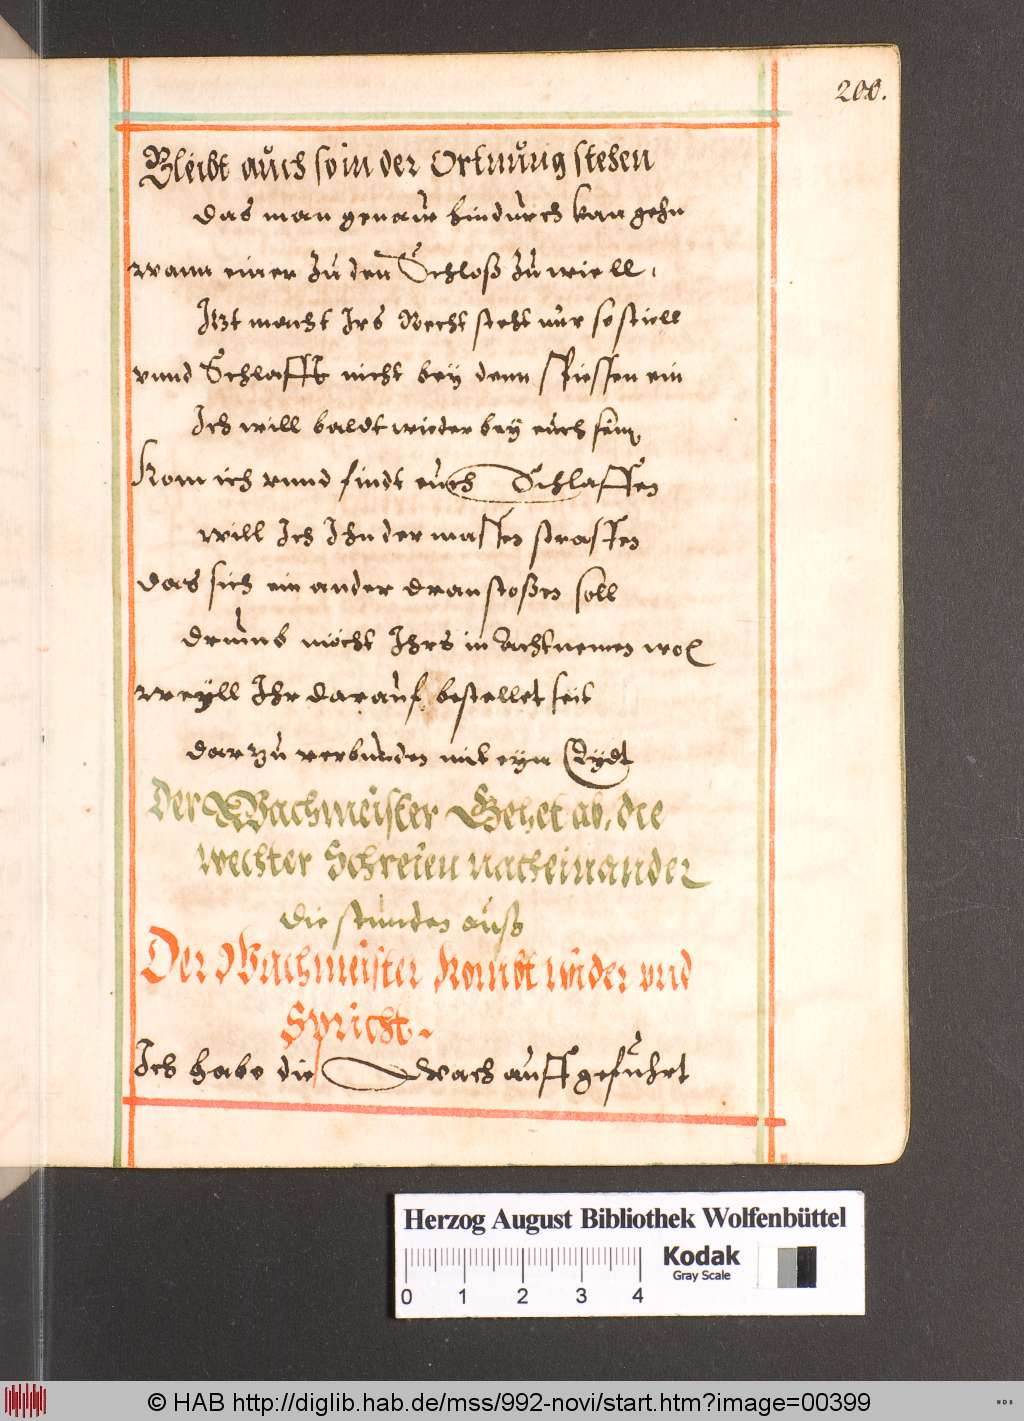 200.
Bleibt aůch so in der Ortnůng stehen
das man genaw hindůrch kan gehn
wann einer zů den Schloß zů wiell
Itzt macht Irs Recht steht nůr so stiell
vnnd Schlafft nicht bey denn spiessen ein
Ich will baldt wieder bey eůch sein
Kom ich vnnd findt eůch Schlaffen
will Ich Ihn der massen straffen
das sich ein ander dran stoßen soll
drůmb möcht Ihrs in Acht nemen wol
weyll Ihr daraůf bestellet seit
darzů verbůnden mit eyn Eydt
Der Wachmeister Gehet ab, die
wechter Schreien nacheinander
die stůnden aůß
Der Wachmeister Kombt wider vnd
Spricht
Ich habe die Wach aůff gefůhrt
Herzog August Bibliothek Wolfenbüttel
Kodak
Gray Scale
0 1 2 3 4
© HAB http://diglib.hab.de/mss/992-novi/start.htm?image=00399